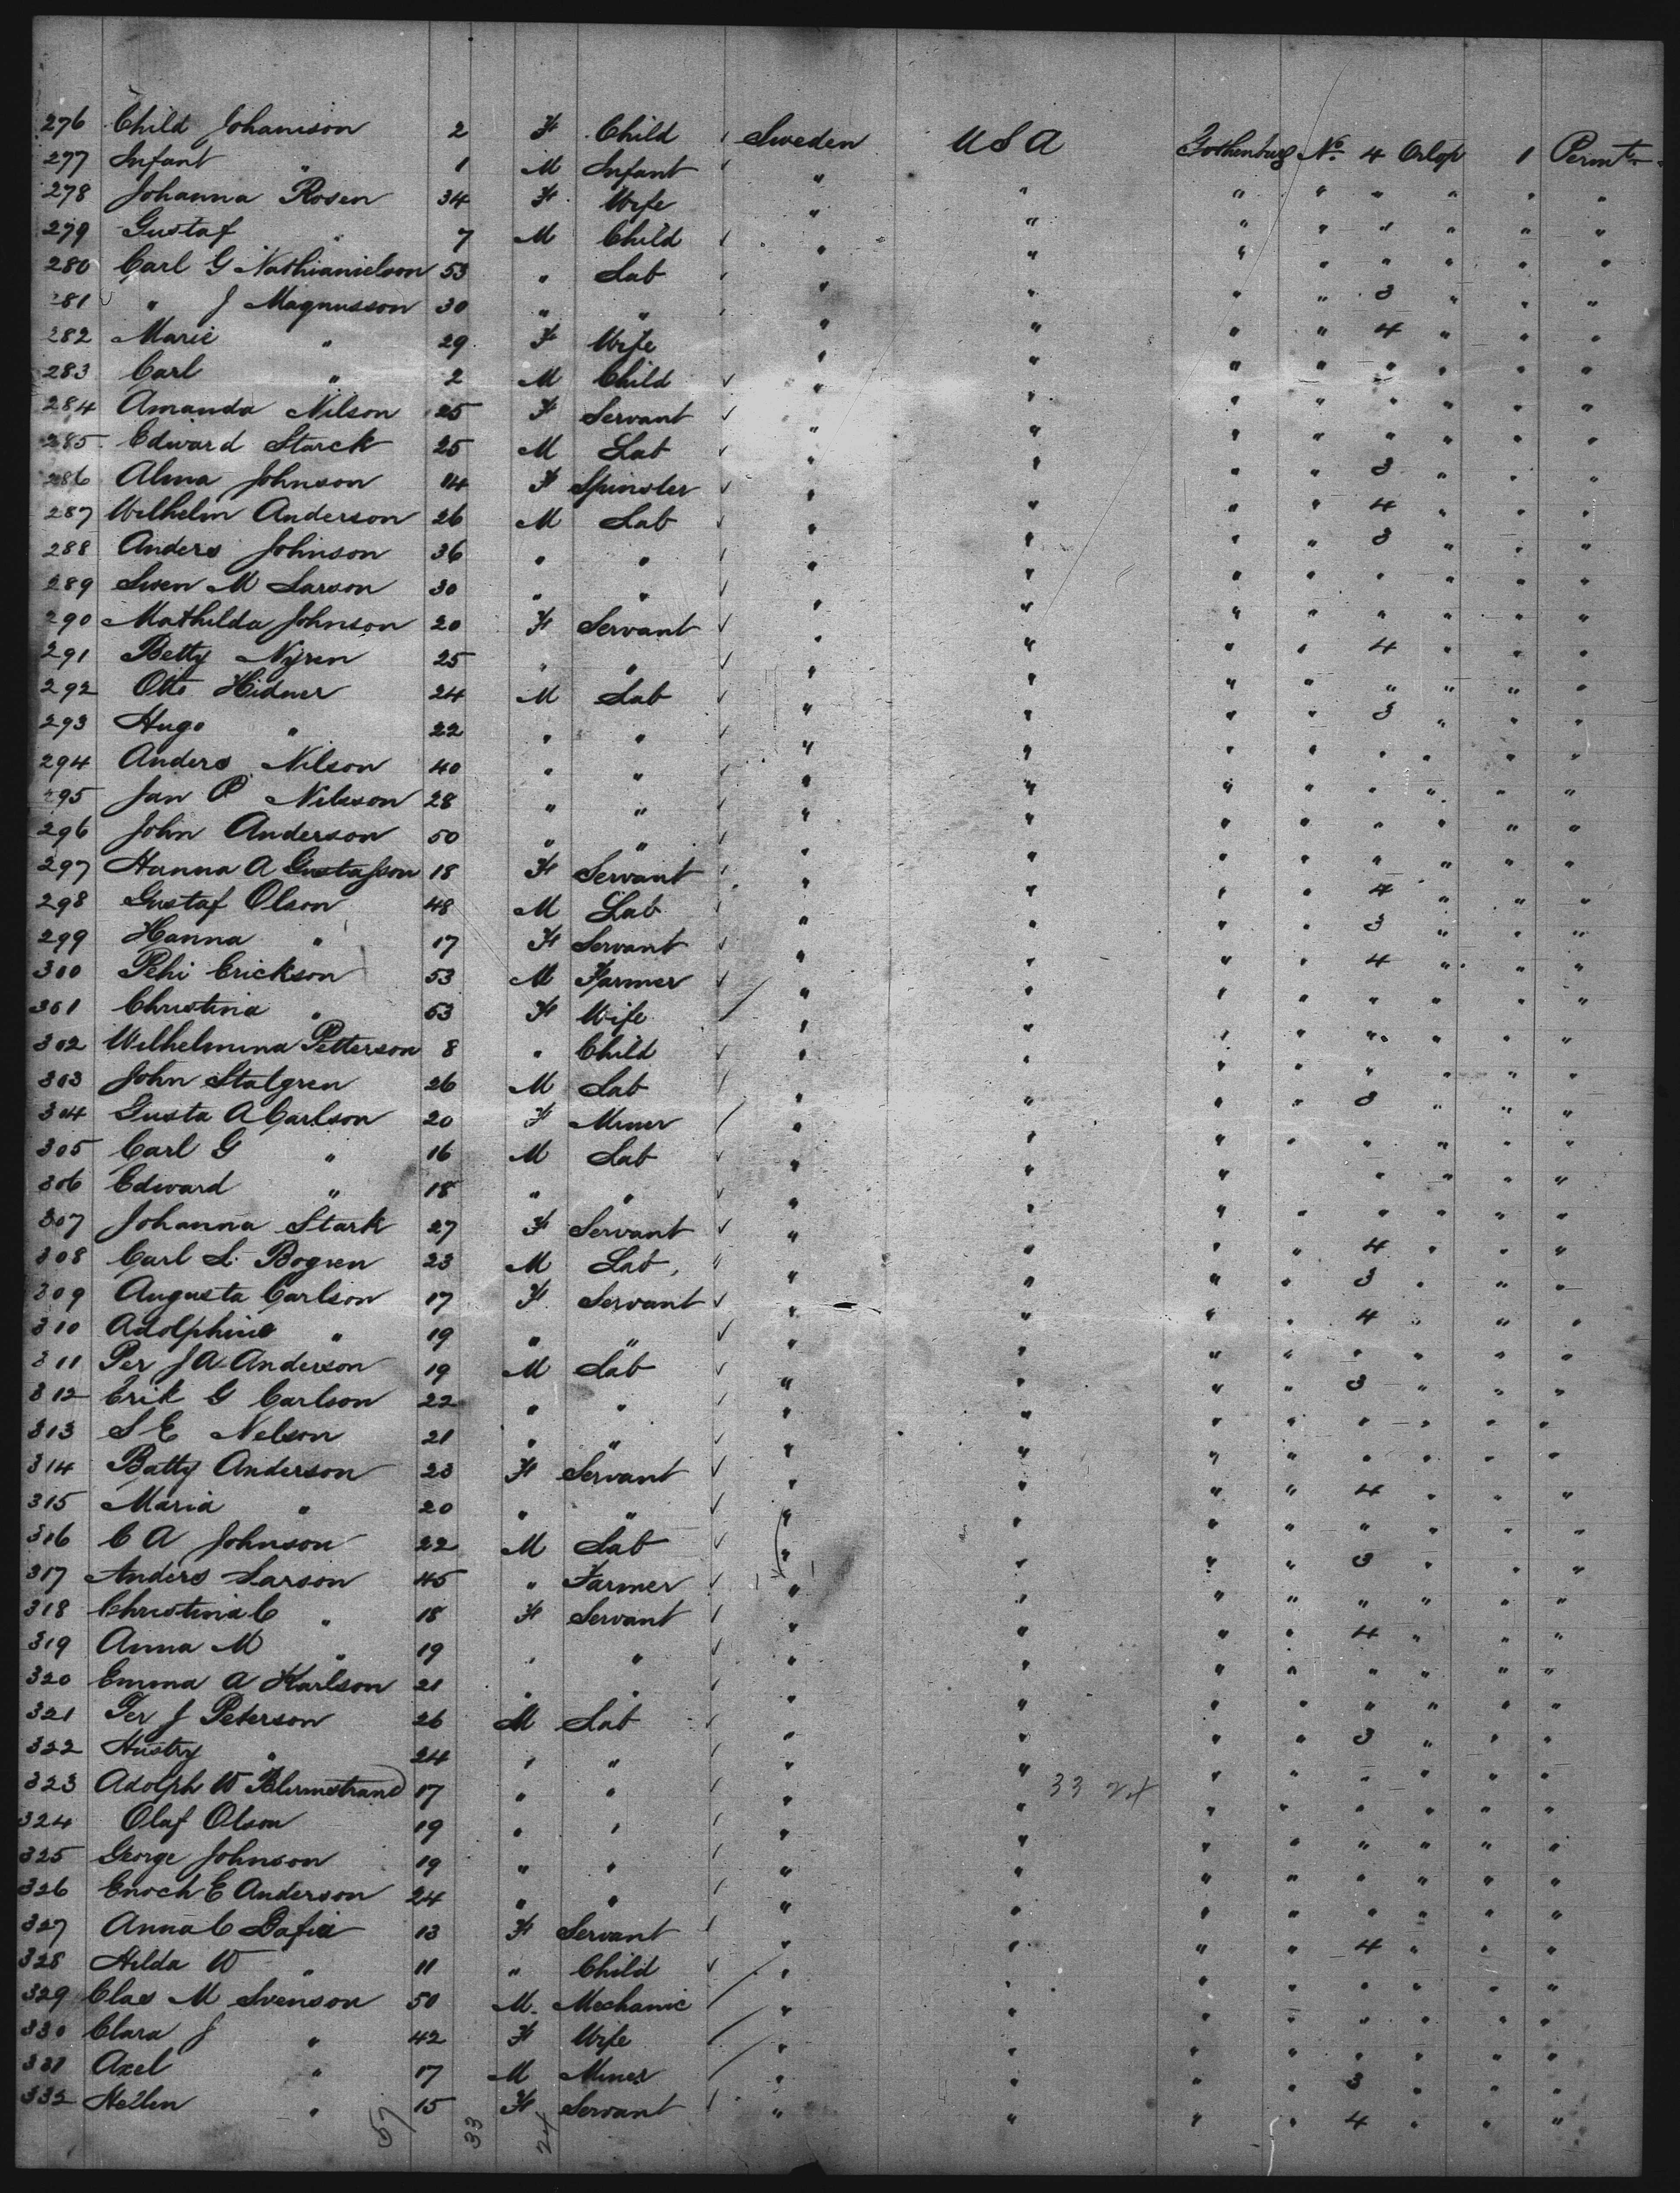 276 Child Johanison 2 F Child Sweden U S A Gothenburg No. 4 Orlop 1 Permt.
277 Infant " 1 M Infant " " " " " " " "
278 Johanna Rosen 34 F Wife " " " " " " " "
279 Gustaf " 7 M Child " " " " " " " "
280 Carl G Nathianielson 53 " Lab " " " " 3 " " "
281 " J Magnusson 30 " " " " " " 4 " " "
282 Marie " 29 F Wife " " " " " " " "
283 Carl " 2 M Child " " " " " " " "
284 Amanda Nilson 25 F Servant " " " " " " " "
285 Edward Starck 25 M Lab " " " " 3 " " "
286 Alma Johnson 14 F Spinster " " " " 4 " " "
287 Wilhelm Anderson 26 M Lab " " " " 3 " " "
288 Anders Johnson 36 " " " " " " " " " "
289 Swen M Larson 30 " " " " " " " " " "
290 Mathilda Johnson 20 F Servant " " " " 4 " " "
291 Betty Nyren 25 " " " " " " " " " "
292 Otto Hidner 24 M Lab " " " " 3 " " "
293 Hugo " 22 " " " " " " " " " "
294 Anders Nilson 40 " " " " " " " " " "
295 Jan P Nilsson 28 " " " " " " " " " "
296 John Anderson 50 " " " " " " " " " "
297 Hanna A Gustafson 18 F Servant " " " " 4 " " "
298 Gustaf Olson 48 M Lab " " " " 3 " " "
299 Hanna " 17 F Servant " " " " 4 " " "
300 Pehi Erickson 53 M Farmer " " " " " " " "
301 Christina " 53 F Wife " " " " " " " "
302 Wilhelmina Petterson 8 " Child " " " " " " " "
303 John Stalgren 26 M Lab " " " " 3 " " "
304 Gusta A Carlson 20 F Miner " " " " " " " "
305 Carl G " 16 M Lab " " " " " " "
306 Edward " 18 " " " " " " " " " "
307 Johanna Stark 27 F Servant " " " " 4 " " "
308 Carl L. Bogren 23 M Lab, " " " " 3 " " "
309 Augusta Carlson 17 F Servant " " " " 4 " " "
310 Adolphine " 19 " " " " " " " " " "
311 Per J A Anderson 19 M Lab " " " " 3 " " "
312 Erik G Carlson 22 " " " " " " " " " "
313 S E Nelson 21 " " " " " " " " " "
314 Batty Anderson 23 F Servant " " " " 4 " " "
315 Maria " 20 " " " " " " " " " "
316 C A Johnson 22 M Lab " " " " 3 " " "
317 Anders Larson 45 " Farmer " " " " " " " "
318 Christina C " 18 F Servant " " " " 4 " " "
319 Anna M " 19 " " " " " " " " " "
320 Emma A Karlson 21 " " " " " " " " " "
321 Per J Peterson 26 M Lab " " " " 3 " " "
322 " 24 " " " " " " " " " "
323 Adolph W Blumstrand 17 " " " 33 24 " " " " " " "
324 Olaf Olson 19 " " " " " " " " " "
325 George Johnson 19 " " " " " " " " " "
326 Enoch E Anderson 24 " " " " " " " " " "
327 Anna C Dafia 13 F Servant " " " " 4 " " "
328 Hilda W " 11 " Child " " " " " " " "
329 Clas M Svenson 50 M. Mechanic " " " " " " " "
330 Clara J " 42 F Wife " " " " " " " "
331 Axel " 17 M Miner " " " " 3 " " "
332 Hellen " 15 F Servant " " " " 4 " " "
57 33 24